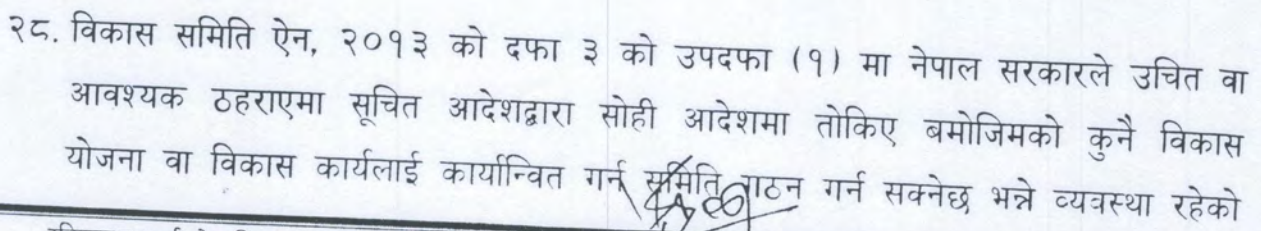 २८. विकास समिति ऐन, २०१३ को दफा ३ को उपदफा (१) मा नेपाल सरकारले उचित वा
आवश्यक ठहराएमा सूचित आदेशद्वारा सोही आदेशमा तोकिए बमोजिमको कुनै विकास
योजना वा विकास कार्यलाई कार्यान्वित गर्न समिति गठन गर्न सक्नेछ भन्ने व्यवस्था रहेको